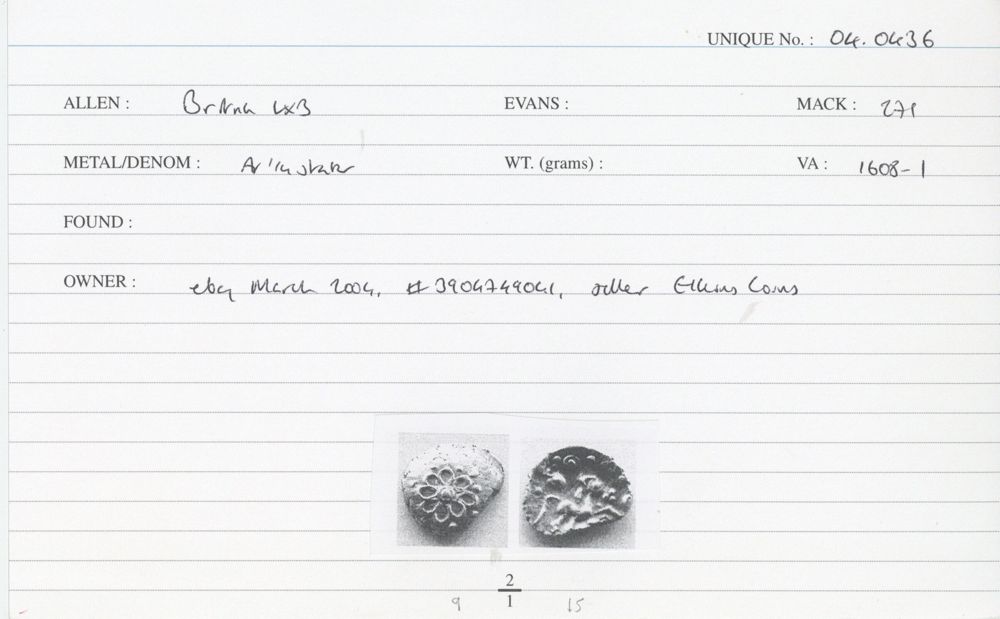 UNIQUE No. : 04.0436
ALLEN : British LxB EVANS : MACK : 271
METAL/DENOM : Ar 1/4 stater WT. (grams) : VA : 1608-1
FOUND :
OWNER : ebay March 2004, # 3904749041, seller Elkins Coins
2
9 1 15